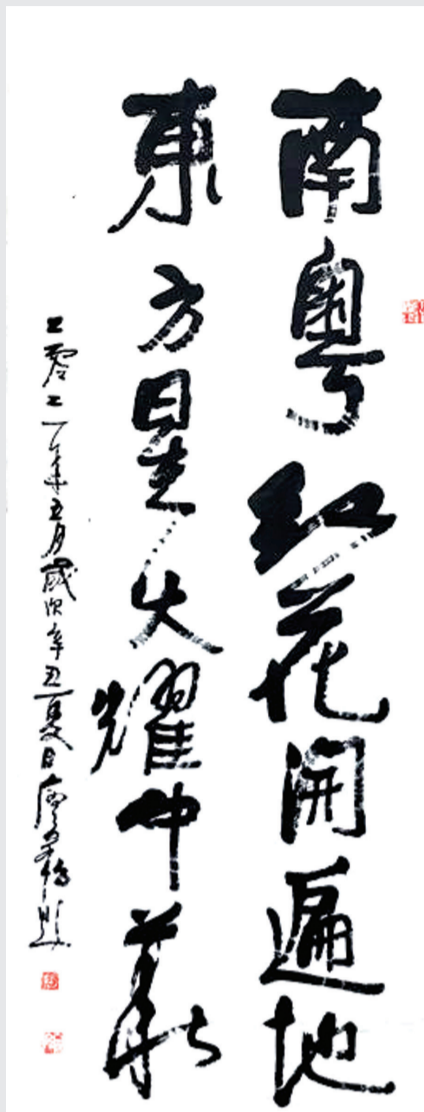 南粤红花開遍地
東方星火耀中華
二零二一年五月歲次辛丑夏日廖題